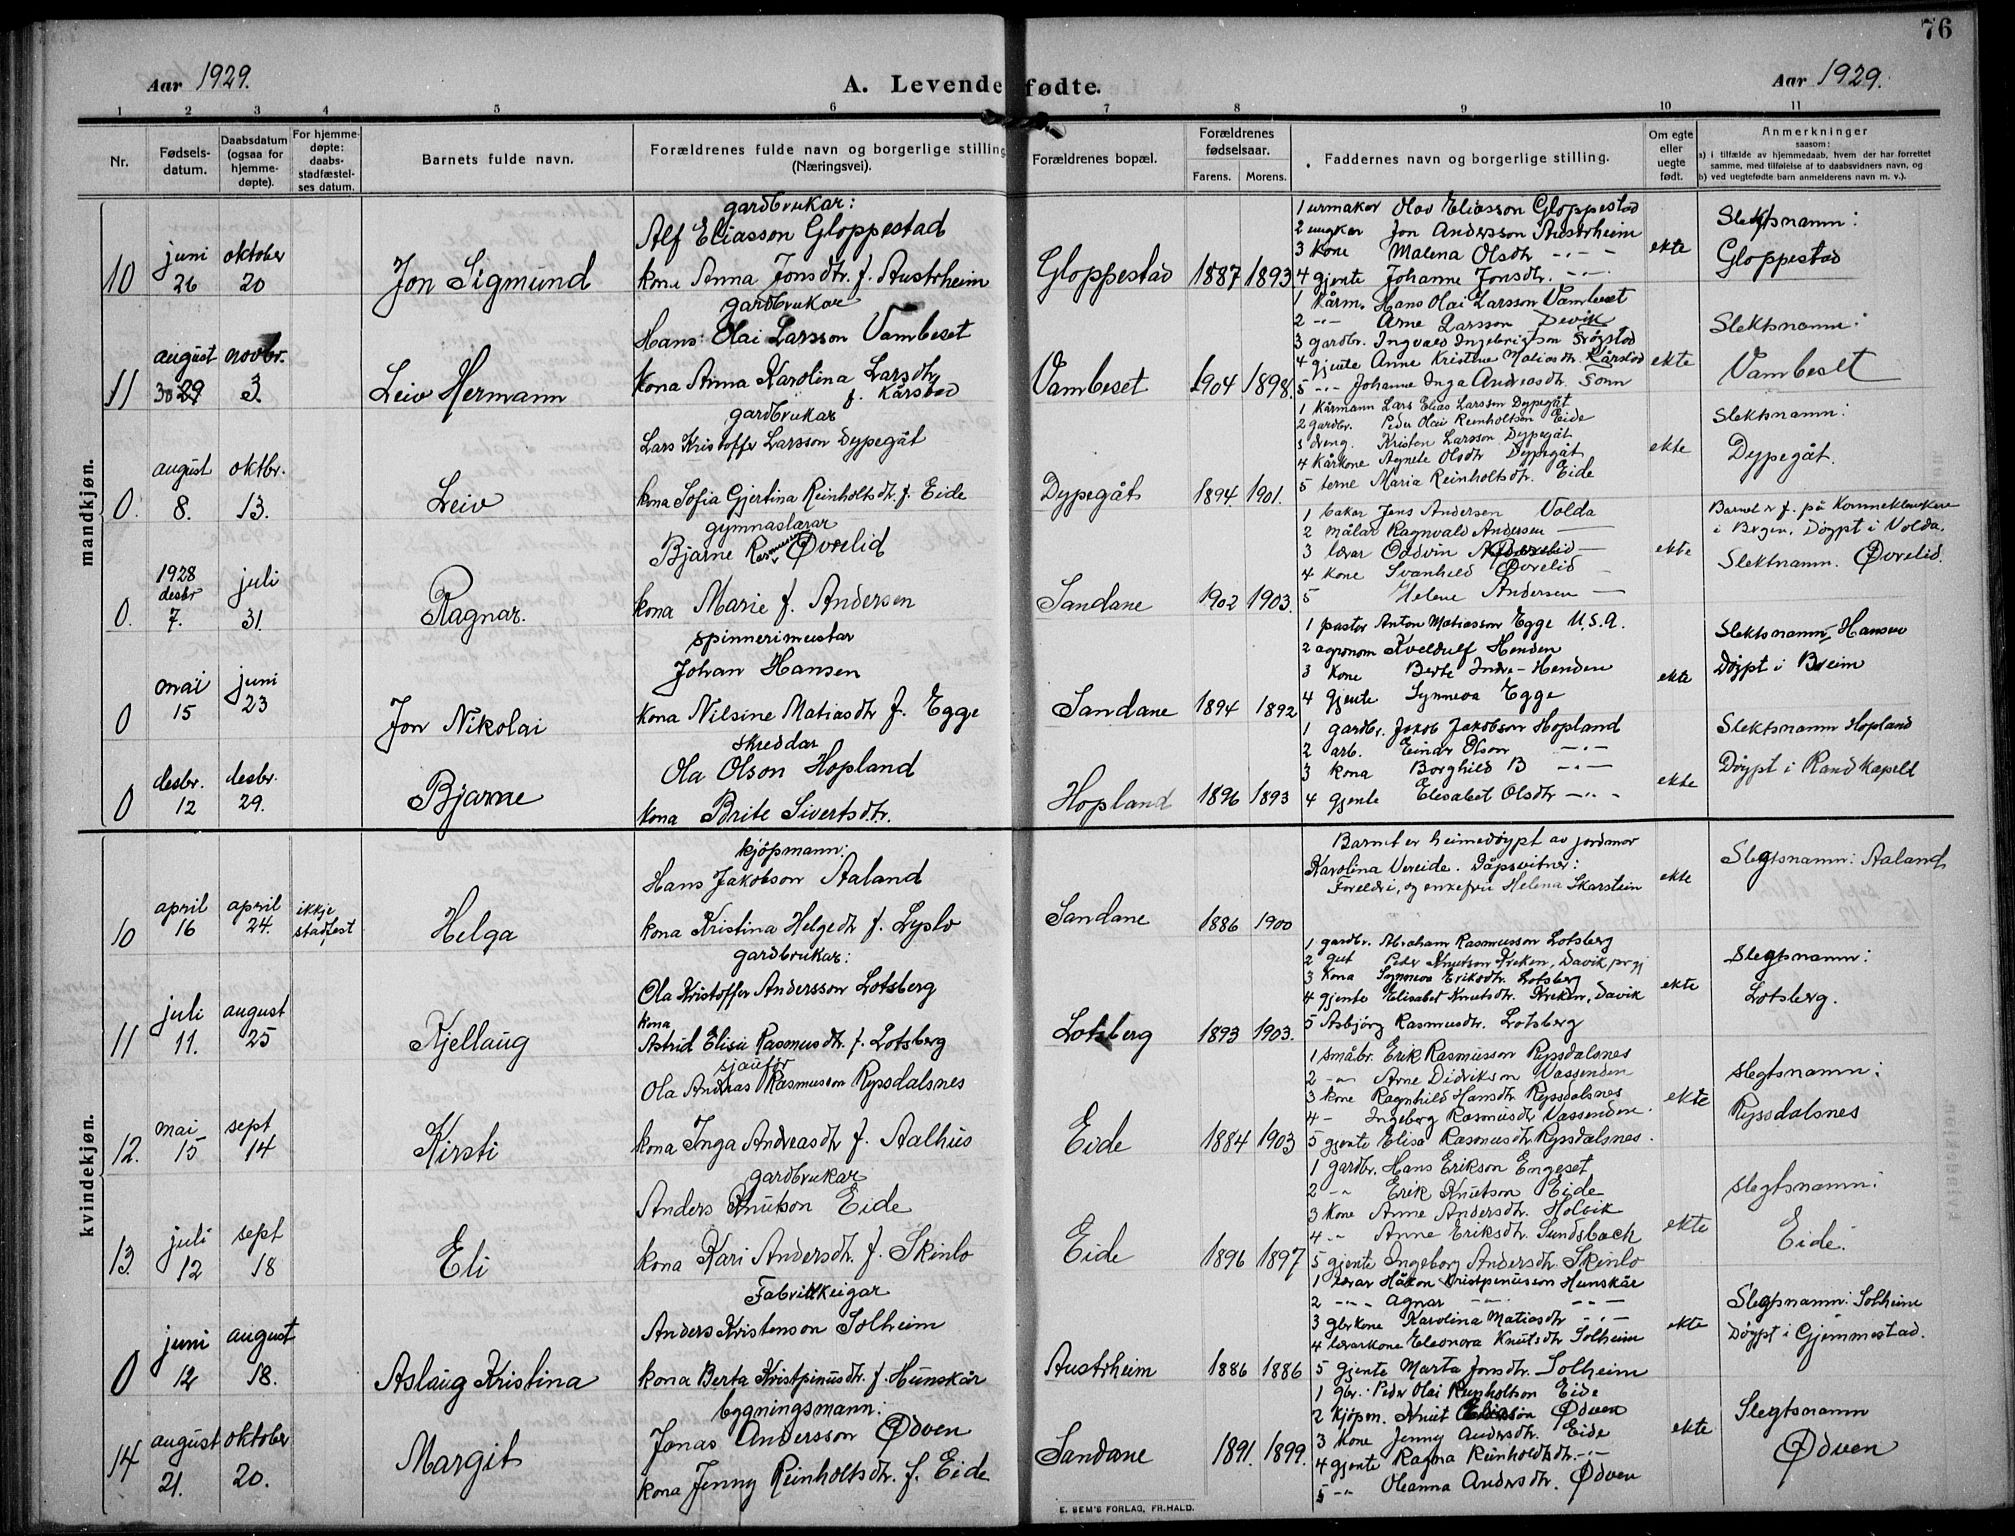 76
Aar 1929.
A. Levendefødte.
Aar 1929.
1 2 3 4 5 6 7 8 9 10 11
Nr.
Fødsels-
datum.
Daabsdatum
(ogsaa for
hjemme-
døpte).
For hjemme-
døpte:
daabs-
stadfæstel-
ses datum.
Barnets fulde navn.
Forældrenes fulde navn og borgerlige stilling
(Næringsvei).
Forældrenes bopæl.
Forældrenes
fødselsaar.
Farens. Morens.
Faddernes navn og borgerlige stilling.
Om egte
eller
uegte
født.
Anmerkninger
saasom:
a) i tilfælde av hjemmedaab, hvem der har forrettet
samme, med tilføielse af to daabsvidners navn, og
b) ved uegtefødte barn anmelderens navn m. v.).
mandkjøn.
10
juni
26
oktober
20
Jon Sigmund
gardbrukar:
Alf Eliasson Gloppestad
kona Anna Jonsdtr. f. Austrheim
Gloppestad 1887 1893
1 urmakar Olav Eliasson Gloppestad
2 ungkar Jon Andersson Austrheim
3 kone Malena Olsdtr —"—
4 gjente Johanne Jonsdtr. —"—
ekte
Slektsnamn:
Gloppestad
11
august
30 29
novbr.
3.
Leiv Hermann
gardbrukar
Hans Olai Larsson Vambeset
kona Anna Karolina Larsdtr
f. Kårstad
Vambeset 1904 1898.
1 kårm. Hans Olai Larsson Vambeset
2 —"— Arne Larsson Devik
3 gardbr. Ingvald Ingebrigtson
4 gjente Anne Kristine Matiasdtr. Kårstad
5 —"— Johanne Inga Andreasdtr. Sonn
ekte
Slektsnamn:
Vambeset
0.
august
8.
oktbr.
13.
Leiv
gardbrukar
Lars Kristoffer Larsson Dypegåt
kona Sofia Gjertina Reinholtsdtr. f. Eide
Dypegåt 1894. 1901.
1 Kårmann Lars Elias Larsson Dypegåt
2 gardbr. Peder Olai Reinholtson Eide
3 dreng. Kristen Larsson Dypegåt
4 Kårkone Agnete Olsdtr Dypegåt
5 terne Maria Reinholtsdtr. Eide
ekte
Slektsnamn:
Dypegåt.
0.
1928
desbr
7.
juli
31.
Ragnar.
gymnaslærar
Bjarne Rasmussen Øvrelid
kona Marie f. Andersen
Sandane 1902 1903.
1 bakar Jens Andersen Volda
2 målar Ragnvald Andersen —
3 lærar Oddvin Øvrelid —
4 kone Svanhild Øvrelid —
5 Helene Andersen —
ekte
Barnet er f. på Kvinneklinikken
i Bergen. Døypt i Volda.
Slektnamn. Øvrelid.
0
mai
15
juni
23
Jon Nikolai
spinnerimeistar
Johan Hansen
kona Nilsine Matiasdtr f. Egge
Sandane 1894 1892
1 pastor Anton Matiasson Egge U.S.A.
2 agronom Kveldulf Henden
3 kone Berte Indre-Henden
4 gjente Synneva Egge
ekte
Slektsnamn, Hansen
Døypt i Breim
0
desbr.
12
desbr.
29.
Bjarne
skreddar
Ola Olson Hopland
kona Brite Sivertsdtr.
Hopland 1896 1893
1 gardbr. Jakob Jakobson Hopland
2 arb. Einar Olson —"—
3 kona Borghild B —"—
4 gjente Elesabet Olsdtr —"—
ekte
Slektsnamn Hopland
Døypt i Rand kapell
kvindekjøn.
10
april
16
april
24.
ikkje
stadfest
Helga
kjøpmann:
Hans Jakobson Aaland
kona Kristina Helgedtr f. Lyslo
Sandane 1886 1900
Barnet er heimedøypt av jordmor
Karolina Vereide. Dåpsvitner:
Foreldri, og enkefru Helena Skarstein
ekte
Slegtsnamn: Aaland
11
juli
11.
august
25
Kjellaug
gardbrukar:
Ola Kristoffer Andersson Lotsberg
kona
Astrid Elise Rasmusdtr. f. Lotsberg
Lotsberg 1893 1903.
1 gardbr. Abraham Rasmusson Lotsberg
2 gut Peder Knutson Freken, Davik
3 kona Synneva Eriksdtr. Lotsberg
4 gjente Elisabet Knutsdtr. Freken, Davik
5 Asbjørg Rasmusdtr. Lotsberg
ekte
Slegtsnamn:
Lotsberg.
12.
mai
15
sept
14
Kirsti
sjaufør
Ola Andreas Rasmusson Ryssdalsnes
kona Inga Andreasdtr f. Aalhus
Eide 1884 1903
1 småbr. Erik Rasmusson Ryssdalsnes
2 —"— Arne Didrikson Vassenden
3 kone Ragnhild Hansdtr Ryssdalsnes
4 — Ingeborg Rasmusdtr Vassenden.
5 gjente Elisa Rasmusdtr Ryssdalsnes.
ekte
Slegtsnamn:
Ryssdalsnes
13.
juli
12
sept
18
Eli
gardbrukar
Anders Knutson Eide
kona Kari Andersdtr. f. Skinlo
Eide 1896 1897
1 gardbr. Hans Erikson Engeset
2 —"— Erik Knutson Eide
3 kone Anne Andersdtr. Holvik
4 —"— Anne Eriksdtr. Sundsbach
5 gjente Ingeborg Andersdtr Skinlo
ekte
Slegtsnamn:
Eide.
0
juni
12
august
18.
Aslaug Kristina
Fabrikkeigar
Anders Kristenson Solheim
kona Berta Kristpinusdtr. f. Hunskår
Austrheim 1886 1886
1 lærar Håkon Kristpinusson Hunskår
2 —"— Agnar —"—
3 gbrkone Karolina Matiasdtr —"—
4 lærarkone Eleonora Knutsdtr Solheim
5 gjente Marta Jonsdtr. Solheim
ekte
Slegtsnamn: Solheim
Døypt i Gjemmestad.
14
august
21.
oktober
20.
Margit
bygningsmann:
Jonas Andersson Ødven
kona Jenny Reinholtsdtr. f. Eide
Sandane 1891. 1899.
1 gbr. Peder Olai Reinholtson Eide
2 kjøpm. Knut Eliasson Ødven
3 kone Jenny Andersdtr. Eide
4 gjente Ragna Reinholdtsdtr. —"—
5 —"— Oleanna Andersdtr. Ødven
ekte
Slegtsnamn
Ødven
E. SEM'S FORLAG, FR.HALD.